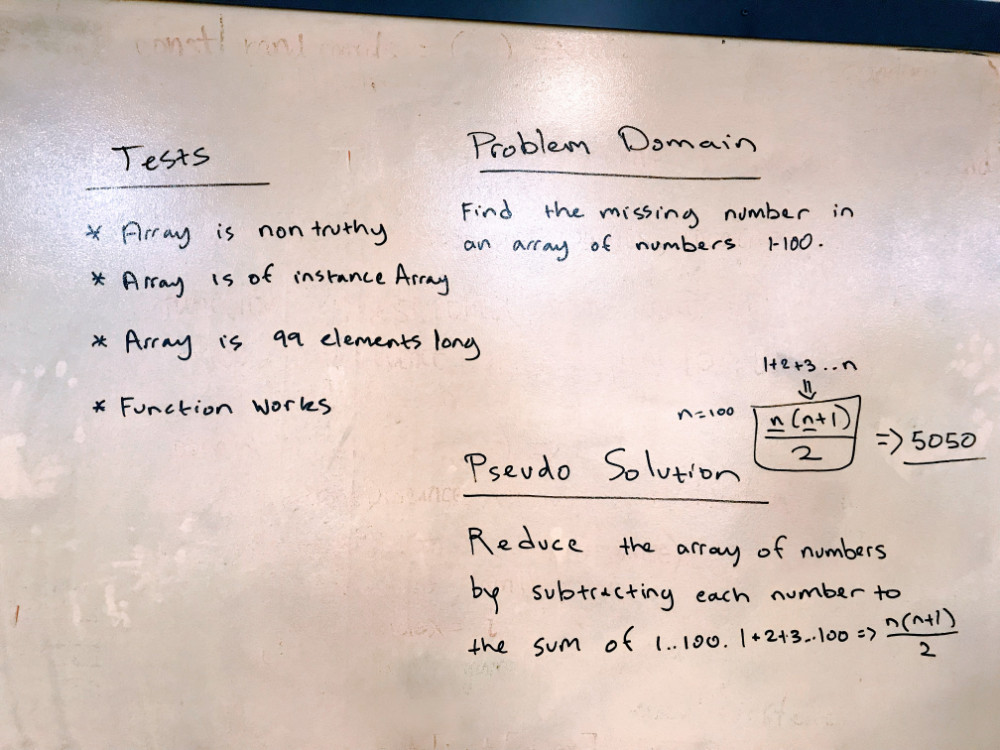 Tests
* Array is non truthy
* Array is of instance Array
* Array is 99 elements long
* Function Works
Problem Domain
Find the missing number in
an array of numbers 1-100.
1+2+3..n
⇓
n=100 n(n+1)/2 => 5050
Pseudo Solution
Reduce the array of numbers
by subtracting each number to
the sum of 1..100. 1+2+3..100 => n(n+1)/2